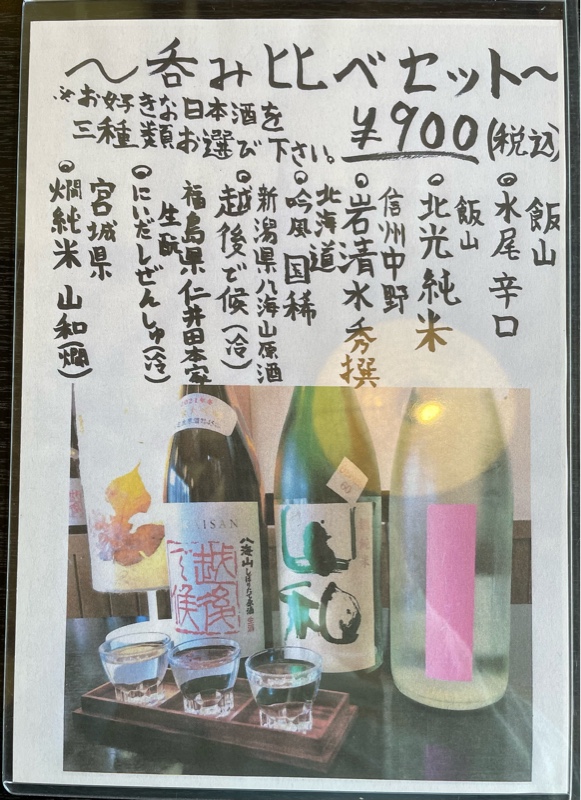 〜呑み比べセット〜
※お好きな日本酒を
三種類お選び下さい。
¥900(税込)
飯山
○水尾 辛口
飯山
○北光純米
信州中野
○岩清水 秀撰
北海道
○吟風 国稀
新潟県八海山原酒
○越後で候(冷)
福島県 仁井田本家
生酛
○にいだしぜんしゅ(冷)
宮城県
○燗純米 山和(燗)
KAISAN
八海山しぼりたて原酒
越後で候
山和